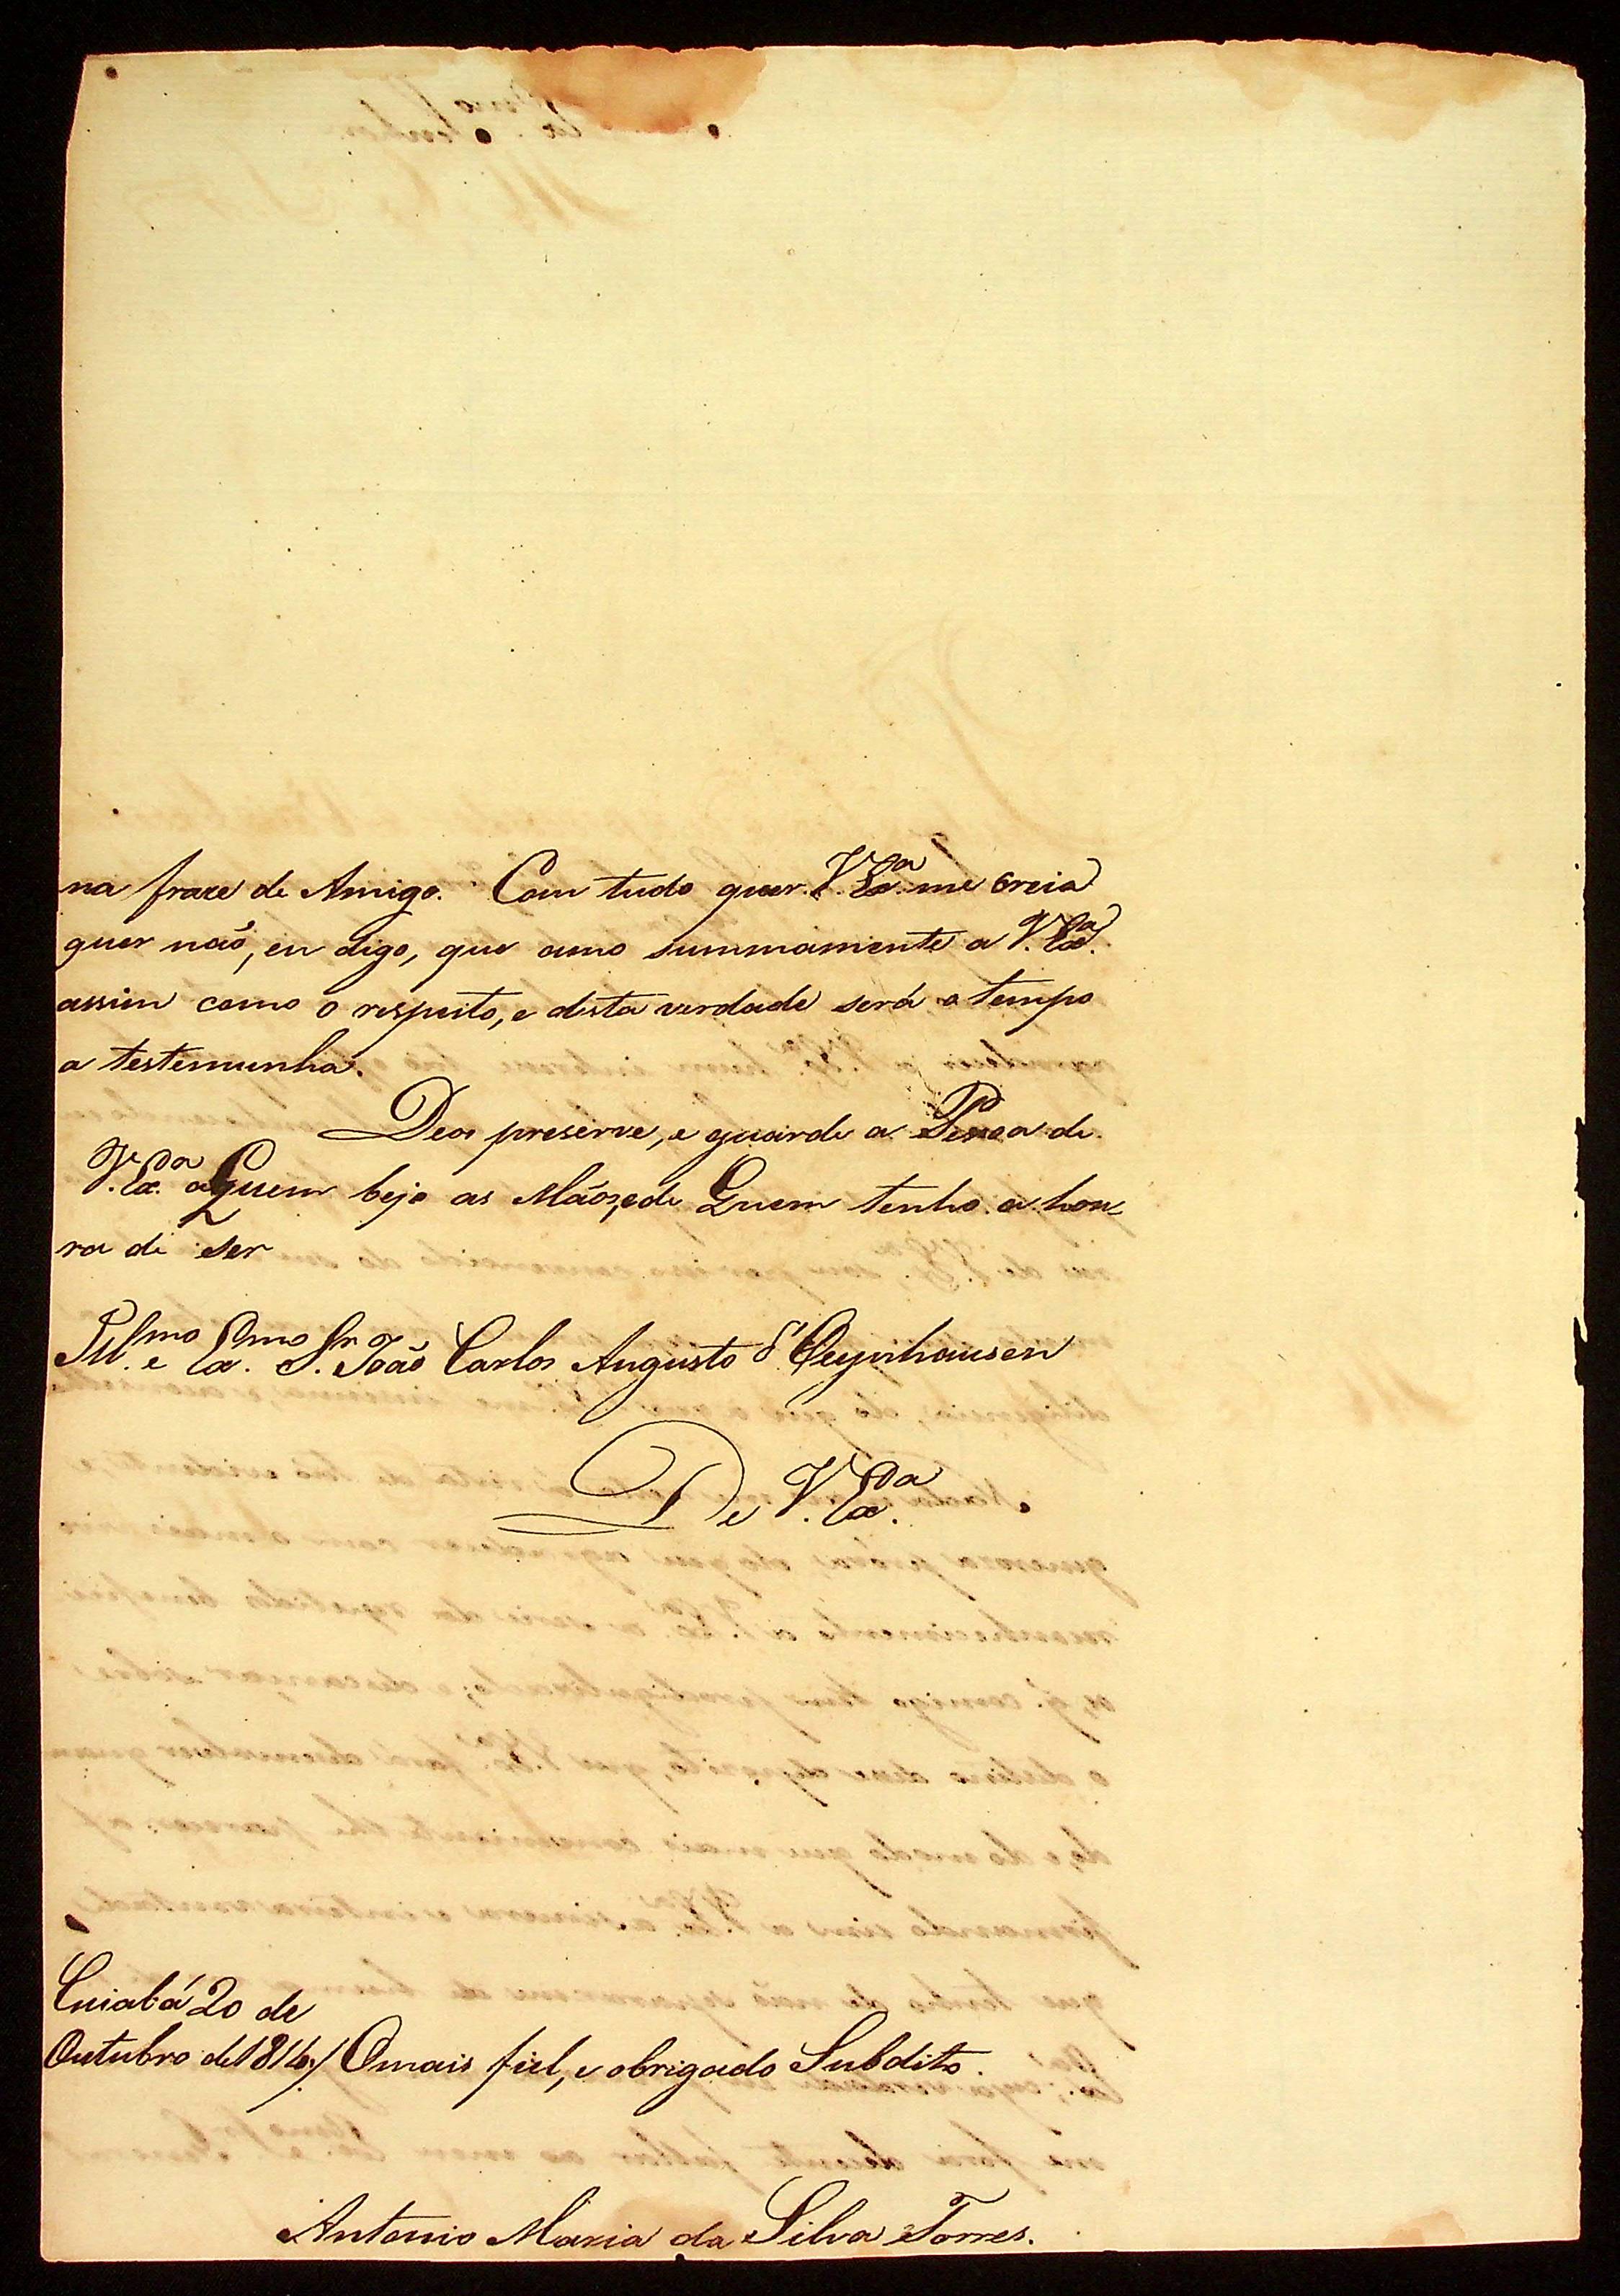 na fraze de Amigo. Com tudo quer V. Exª. me creia
quer naõ, eu digo, que amo summamente a V. Exª.
assim como o respeito, e desta verdade será o tempo
a testemunha.
Deos preserve, e guarde a Pesoa de
V. Exª. a Quem bejo as Mãos, e de Quem tenho a hon-
ra de ser
Illmo. e Exmo. Snr. João Carlos Augusto d'Oeynhausen
De V. Exª.
Cuiabá 20 de
Outubro de 1814 / O mais fiel, e obrigado Subdito.
Antonio Maria da Silva Torres.